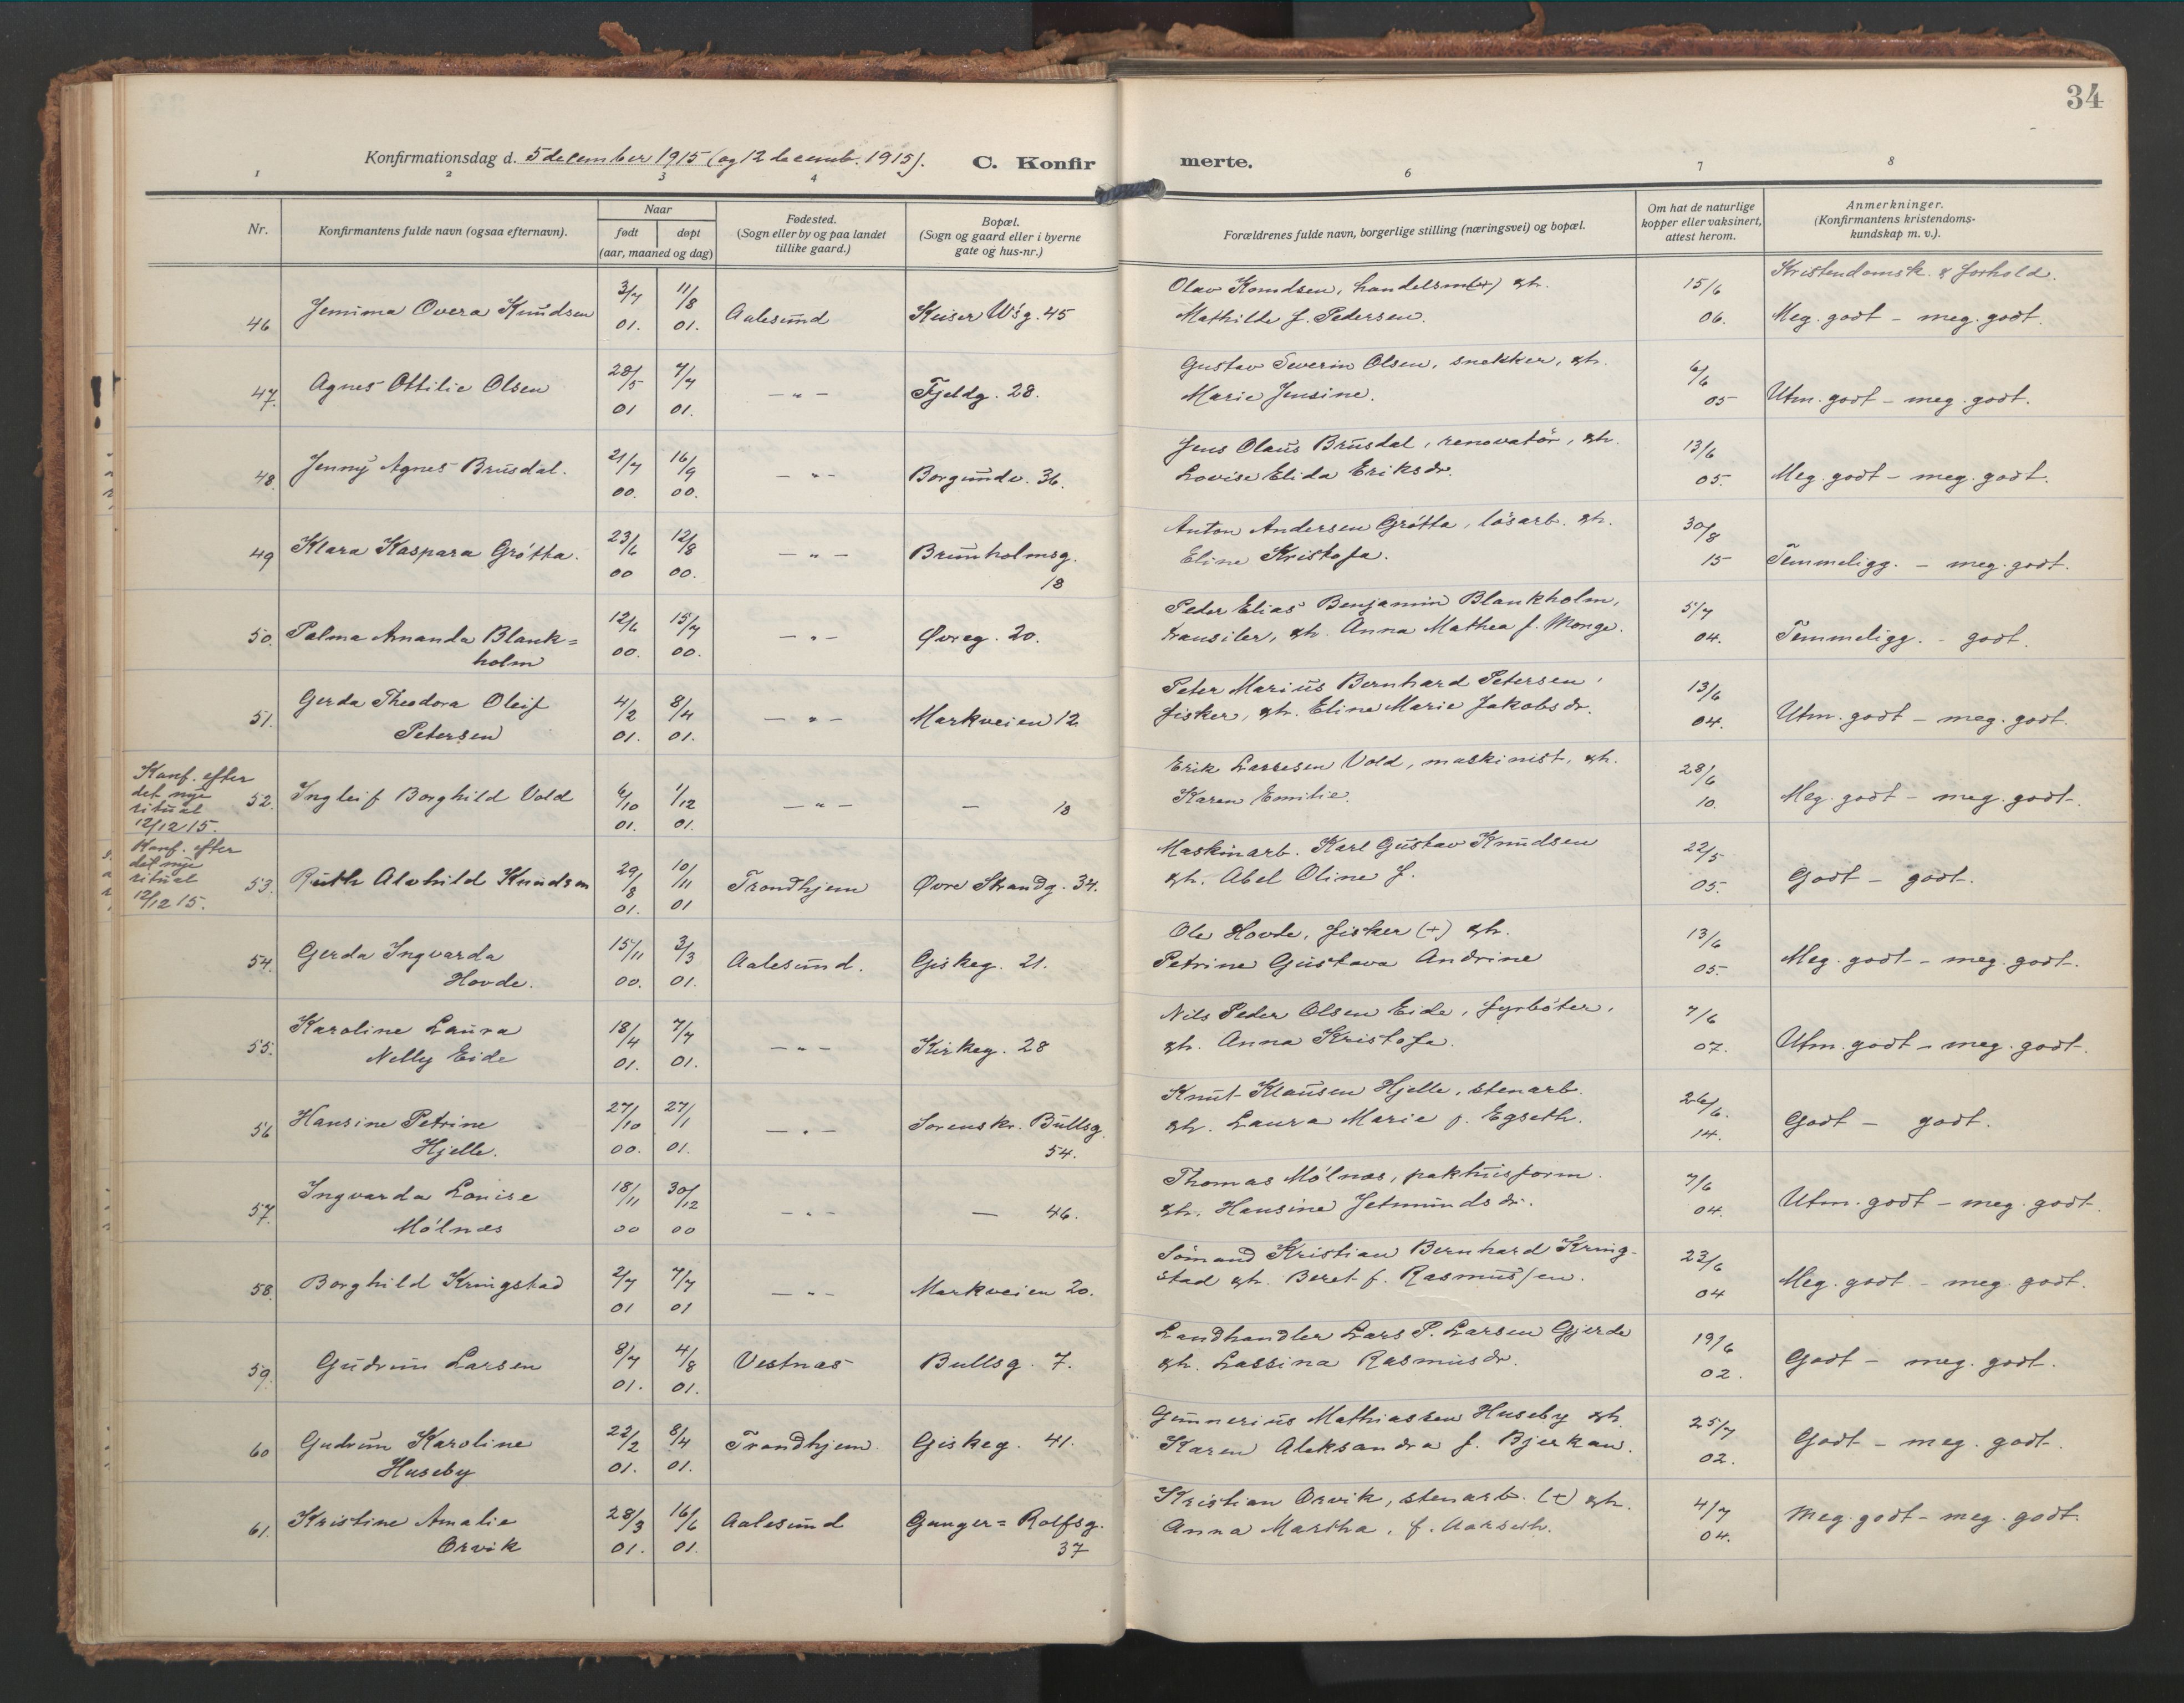 34
Konfirmationsdag d. 5 december 1915 (og 12 decemb. 1915). C. Konfir merte.
1 2 3 4 6 7 8
Nr. Konfirmantens fulde navn (ogsaa efternavn). Naar født døpt (aar, maaned og dag) Fødested. (Sogn eller by og paa landet tillike gaard.) Bopæl. (Sogn og gaard eller i byerne gate og hus-nr.) Forældrenes fulde navn, borgerlige stilling (næringsvei) og bopæl. Om hat de naturlige kopper eller vaksinert, attest herom. Anmerkninger. (Konfirmantens kristendoms-kundskap m. v.).
Kristendomsk. & forhold.
46 Jemima Overa Knudsen 3/7 01. 11/8 01. Aalesund Keiser W's g. 45 Olav Knudsen, handelsm. (+) & h. 15/6 06. Meg. godt - meg. godt.
Mathilde f. Pedersen.
47. Agnes Ottilie Olsen 28/5 01 7/7 01. - " - Fjeldg. 28. Gustav Severin Olsen, snekker, & h. 6/6 05 Utm. godt - meg. godt.
Marie Jensine.
48. Jenny Agnes Brusdal. 21/7 00. 16/9 00. - " - Borgundv. 36. Jens Olaus Brusdal, renovatör, & h. 13/6 05. Meg. godt - meg. godt.
Lovise Elida Eriksdr.
49 Klara Kaspara Grótta. 23/6 00 12/8 00. - " - Brunholmsg. 18 Anton Andersen Grótta, lösarb. & h. 30/8 15 Temmeligg. - meg. godt.
Eline Kristofa.
50. Palma Amanda Blank= 12/6 00. 15/7 00. - " - Øvreg. 20. Peder Elias Benjamin Blankholm, 5/7 04. Temmeligg. - godt.
holm transiler, & h. Anna Mathea f. Monge.
51. Gerda Theodora Oleif 4/2 01. 8/4 01. - " - Markveien 12 Peter Marius Bernhard Petersen, 13/6 04. Utm. godt - meg. godt.
Petersen fisker, & h. Eline Marie Jakobsdr.
Konf. efter
det nye
ritual
12/12 15.
52. Ingleif Borghild Vold 6/10 01. 1/12 01. - " - - 18 Erik Larsesen Vold, maskinist, & h. 28/6 10. Meg. godt - meg. godt.
Karen Emilie.
Konf. efter
det nye
ritual
12/12 15.
53. Ruth Alvhild Knudsen 29/8 01. 10/11 01 Trondhjem Øvre Strandg. 34. Maskinarb. Karl Gustav Knudsen 22/5 05. Godt - godt.
& h. Abel Oline J.
54. Gerda Ingvarda 15/11 00. 3/3 01. Aalesund. Giskeg. 21. Ole Hovde, fisker (+) & h. 13/6 05. Meg. godt - meg. godt.
Hovde. Petrine Gustava Andrine
55. Karoline Laura 18/4 01. 7/7 01. - " - Kirkeg. 28 Nils Peder Olsen Eide, fyrböter, 7/6 07. Utm. godt - meg. godt.
Nelly Eide & h. Anna Kristofa.
56 Hansine Petrine 27/10 00. 27/1 01. - " - Sorenskr. Bullsg. 54. Knut Klausen Hjelle, stenarb. 26/6. 14. Godt - godt.
Hjelle. & h. Laura Marie f. Egseth.
57. Ingvarda Lovise 18/11 00 30/12 00 - " - - 46. Thomas Mólnæs, pakhusform. 7/6 04. Utm. godt - meg. godt.
Mólnæs & h. Hansine Jetmundsdr.
58. Borghild Kringstad 2/7 01 7/7 01 - " - Markveien 20. Sömand Kristian Bernhard Kring- 23/6 04 Meg. godt - meg. godt.
stad & h. Beret f. Rasmussen.
59. Gudrun Larsen 8/7 01. 4/8 01. Vestnæs Bullsg. 7. Landhandler Lars P. Larsen Gjerde 19/6 02. Godt - meg. godt.
& h. Lassina Rasmusdr.
60 Gudrun Karoline 22/2 01. 8/4 01. Trondhjem Giskeg. 41. Gunnerius Mathiassen Huseby & h. 25/7 02. Godt - meg. godt.
Huseby Karen Aleksandra f. Bjerkan.
61. Kristine Amalie 28/3 01. 16/6 01. Aalesund Ganger= Rolfsg. 37 Kristian Orvik, stenarb. (+) & h. 4/7 04. Meg. godt - meg. godt.
Orvik Anna Martha, f. Aarseth.